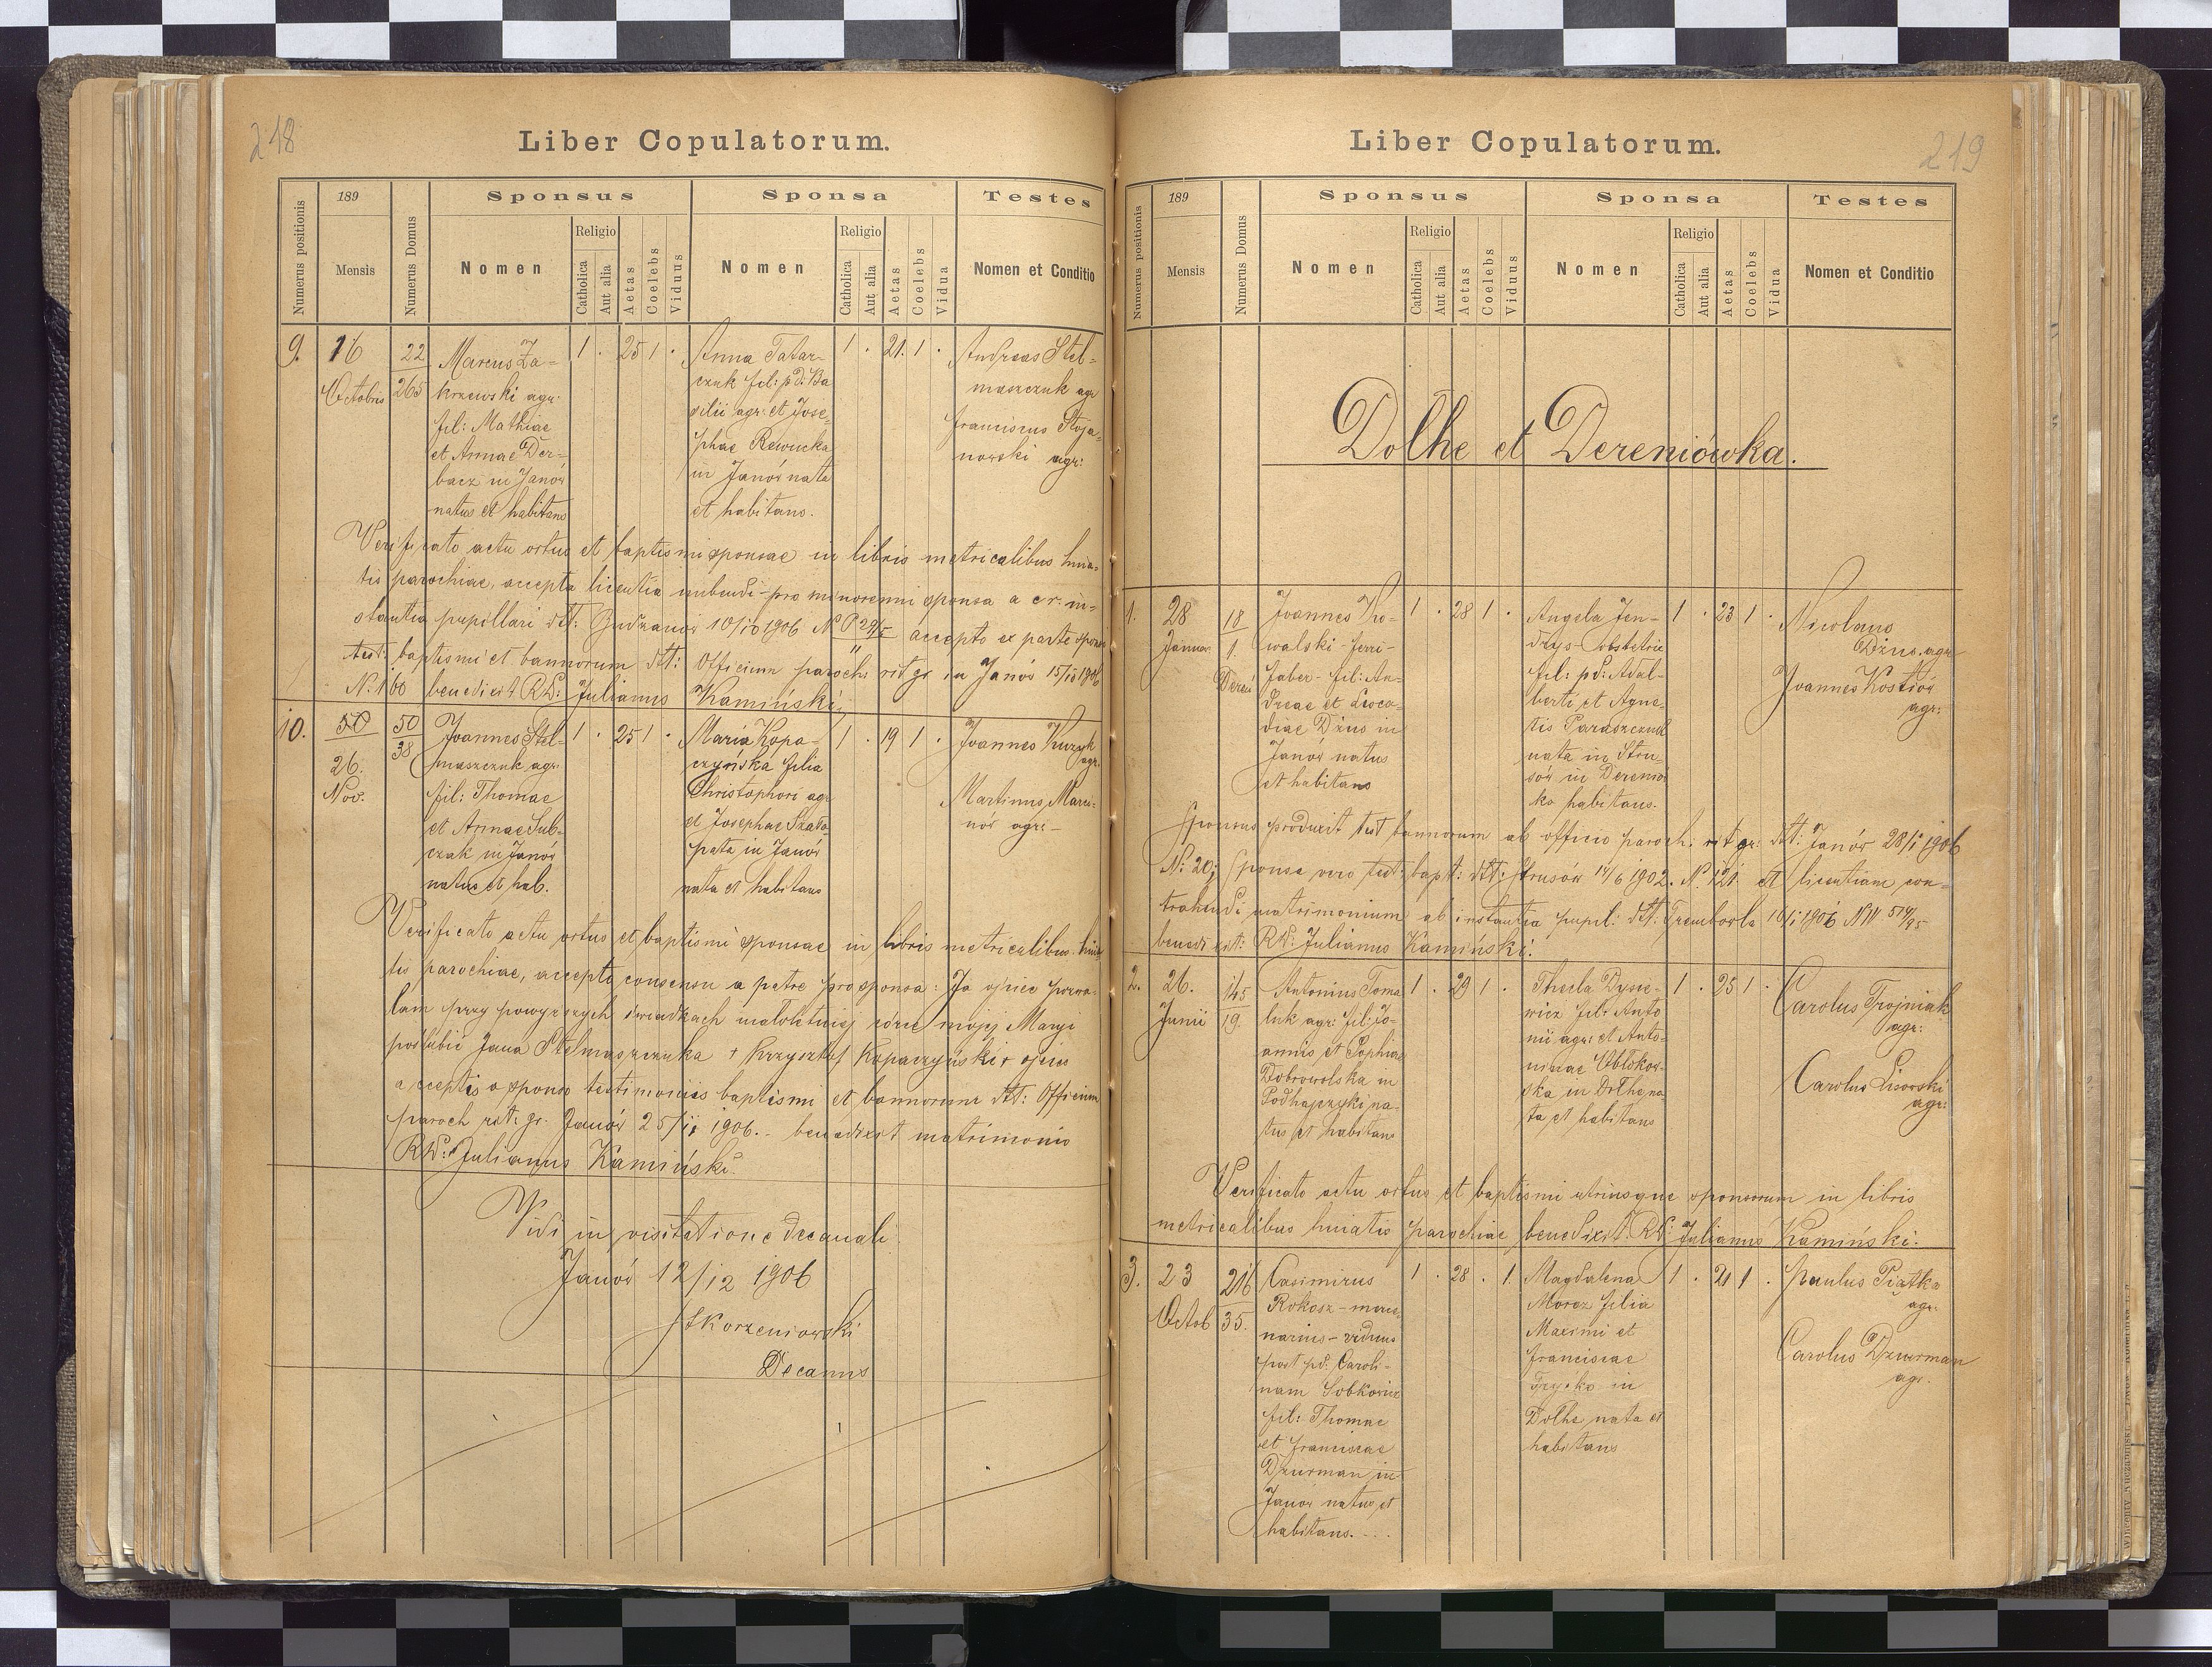 218
Liber Copulatorum.
Numerus positionis
189
Mensis
Numerus Domus
Sponsus
Nomen
Religio
Catholica
Aut alia
Aetas
Coelebs
Viduus
Sponsa
Nomen
Religio
Catholica
Aut alia
Aetas
Coelebs
Vidua
Testes
Nomen et Conditio
9.
16
Octobris
22
265
Marcus Za-
krzewski agr:
fil: Mathiae
et Annae Der-
bacz in Janów
natus et habitans
1 . 25 1 .
Anna Tatar-
czuk fil: pd: Ba
silii agr: et Jose
phae Rewucka
in Janów nata
et habitans.
1 . 21. 1 .
Andreas Stel-
maszczuk agr
Franciscus Stoja-
nowski agr:
Verificato actu ortus et baptismi sponsae in libris metricalibus huia-
tis parochiae, accepta licentia nubendi pro minorenni sponsa a cr. in-
stantia pupillari dtt: Budzanów 10/10 1906 N P 29/5 accepto ex parte sponsi
test: baptismi et bannorum dtt: Officium paroch. rit gr in Janów 15/10 1906
N. 160 benedixit RD: Julianus Kamiński.
10.
50
26.
Nov.
50
38
Joannes Stel-
maszczuk agr:
fil: Thomae
et Annae Sub-
czak in Janów
natus et hab.
1 . 25 1 .
Maria Kopa-
czyńska filia
Christophori agr
et Josephae Szata
pata in Janów
nata et habitans
1 . 19 1 .
Joannes Kuzyk
agr.
Martinus Marci-
nów agr:
Verificato actu ortus et baptismi sponsae in libris metricalibus huia
tis parochiae, accepto consensu a patre pro sponsa: Ja ojciec pozwa-
lam przy powyższych świadkach małoletniej córce mojej Maryi
poślubić Jana Stelmaszczuka + Krzysztof Kopaczyński + ojciec
acceptis a sponso testimoniis baptismi et bannorum dtt: Officium
paroch rit. gr. Janów 25/11 1906. - benedixit matrimonio
RD: Julianus Kamiński.
Vidi in visitatione decanali
Janów 12/12 1906
Korzeniowski
Decanus
219
Liber Copulatorum.
Numerus positionis
189
Mensis
Numerus Domus
Sponsus
Nomen
Religio
Catholica
Aut alia
Aetas
Coelebs
Viduus
Sponsa
Nomen
Religio
Catholica
Aut alia
Aetas
Coelebs
Vidua
Testes
Nomen et Conditio
Dolhe et Dereniówka.
1.
28
Januar
18
1.
Joannes Ko-
walski - ferri-
faber - fil: An-
dreae et Leoca-
diae Dzus in
Janów natus
et habitans
1 . 28 1 .
Angela Jen-
drys - obstetrix
fil: pd: Adal-
berti et Agne-
tis Paraszczuk
nata in Stru-
sów in Dereniów
ka habitans.
1 . 23 1 .
Nicolaus
Dzus agr
Joannes Kostiów
agr:
Sponsus produxit test bannorum ab officio paroch: rit gr: dtt: Janów 28/1 1906
N: 20; Sponsa vero test: bapt: dtt: Strusów 14/6 1902. N. 121 et licentiam con-
trahendi matrimonium ab instantia pupil: dtt: Trembowla 16/1 1906 N IV 514/95
benedixit: RD: Julianus Kamiński.
2.
26.
Junii
145
19.
Antonius Toma
luk agr: fil: Jo-
annis et Sophiae
Dobrowolska in
Podhajczyki na-
tus et habitans
1 . 29 1 .
Thecla Dysie-
wicz fil: Anto
nii agr: et Anto-
ninae Obłokow-
ska in Dolhe na
ta et habitans
1 . 25 1 .
Carolus Trojniak
agr:
Carolus Lisowski
agr:
Verificato actu ortus et baptismi utriusque sponsorum in libris
metricalibus huiatis parochiae benedixit RD: Julianus Kamiński.
3.
23
Octob
216
35.
Casimirus
Rokosz - merce
narius - viduus
post pd: Caroli-
nam Sobkowicz
fil: Thomae
et Franciscae
Dziurman in
Janów natus et
habitans. - . .
1 . 28 . 1.
Magdalena
Moroz filia
Maximi et
Franciscae
in
Dolhe nata et
habitans
1 . 21 1 .
Paulus Piatka
agr.
Carolus Dziurman
agr.